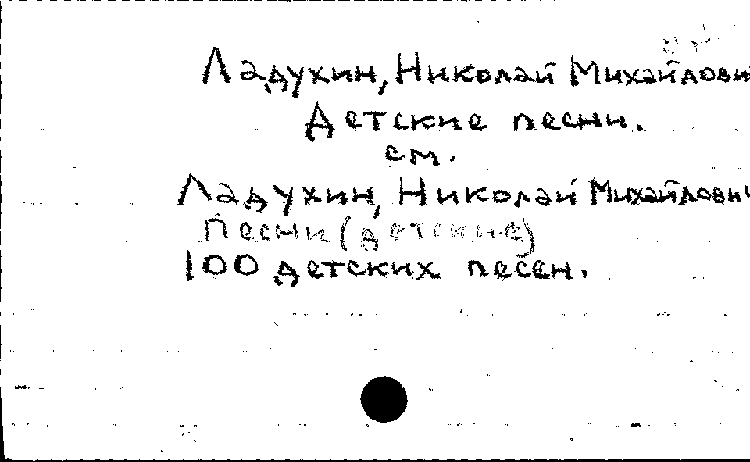 Ладухин, Николай Михайлови
Детские песни.
см.
Ладухин, Николай Михайлович
Песни (детские)
100 детских песен.